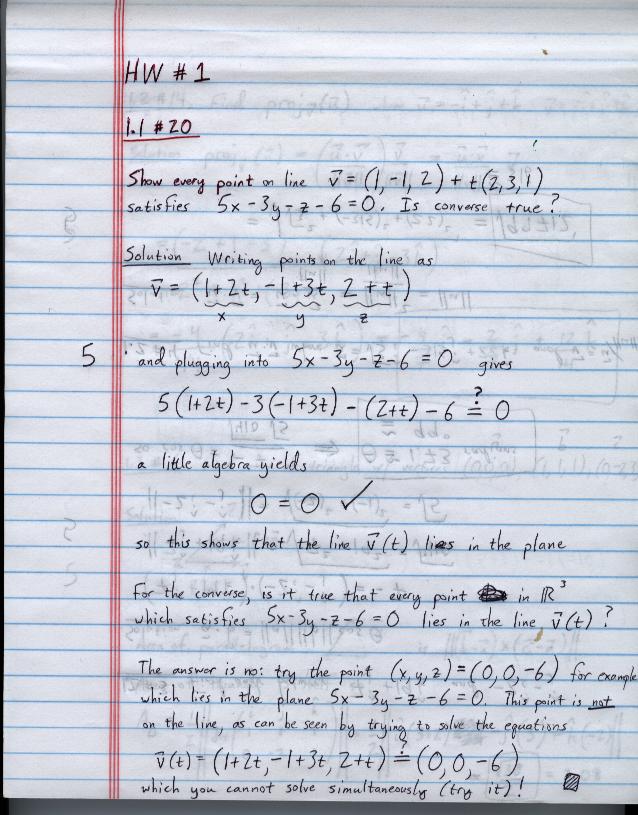 HW # 1
1.1 # 20
Show every point on line v⃗ = (1, -1, 2) + t(2, 3, 1)
satisfies 5x - 3y - z - 6 = 0. Is converse true?
Solution Writing points on the line as
v⃗ = (1+2t, -1+3t, 2+t)
x y z
5
and plugging into 5x - 3y - z - 6 = 0 gives
5(1+2t) - 3(-1+3t) - (2+t) - 6 ≟ 0
a little algebra yields
0 = 0 ✓
so this shows that the line v⃗(t) lies in the plane
For the converse, is it true that every point in ℝ³
which satisfies 5x - 3y - z - 6 = 0 lies in the line v⃗(t)?
The answer is no: try the point (x, y, z) = (0, 0, -6) for example
which lies in the plane 5x - 3y - z - 6 = 0. This point is not
on the line, as can be seen by trying to solve the equations
v⃗(t) = (1+2t, -1+3t, 2+t) ≟ (0, 0, -6)
which you cannot solve simultaneously (try it)!